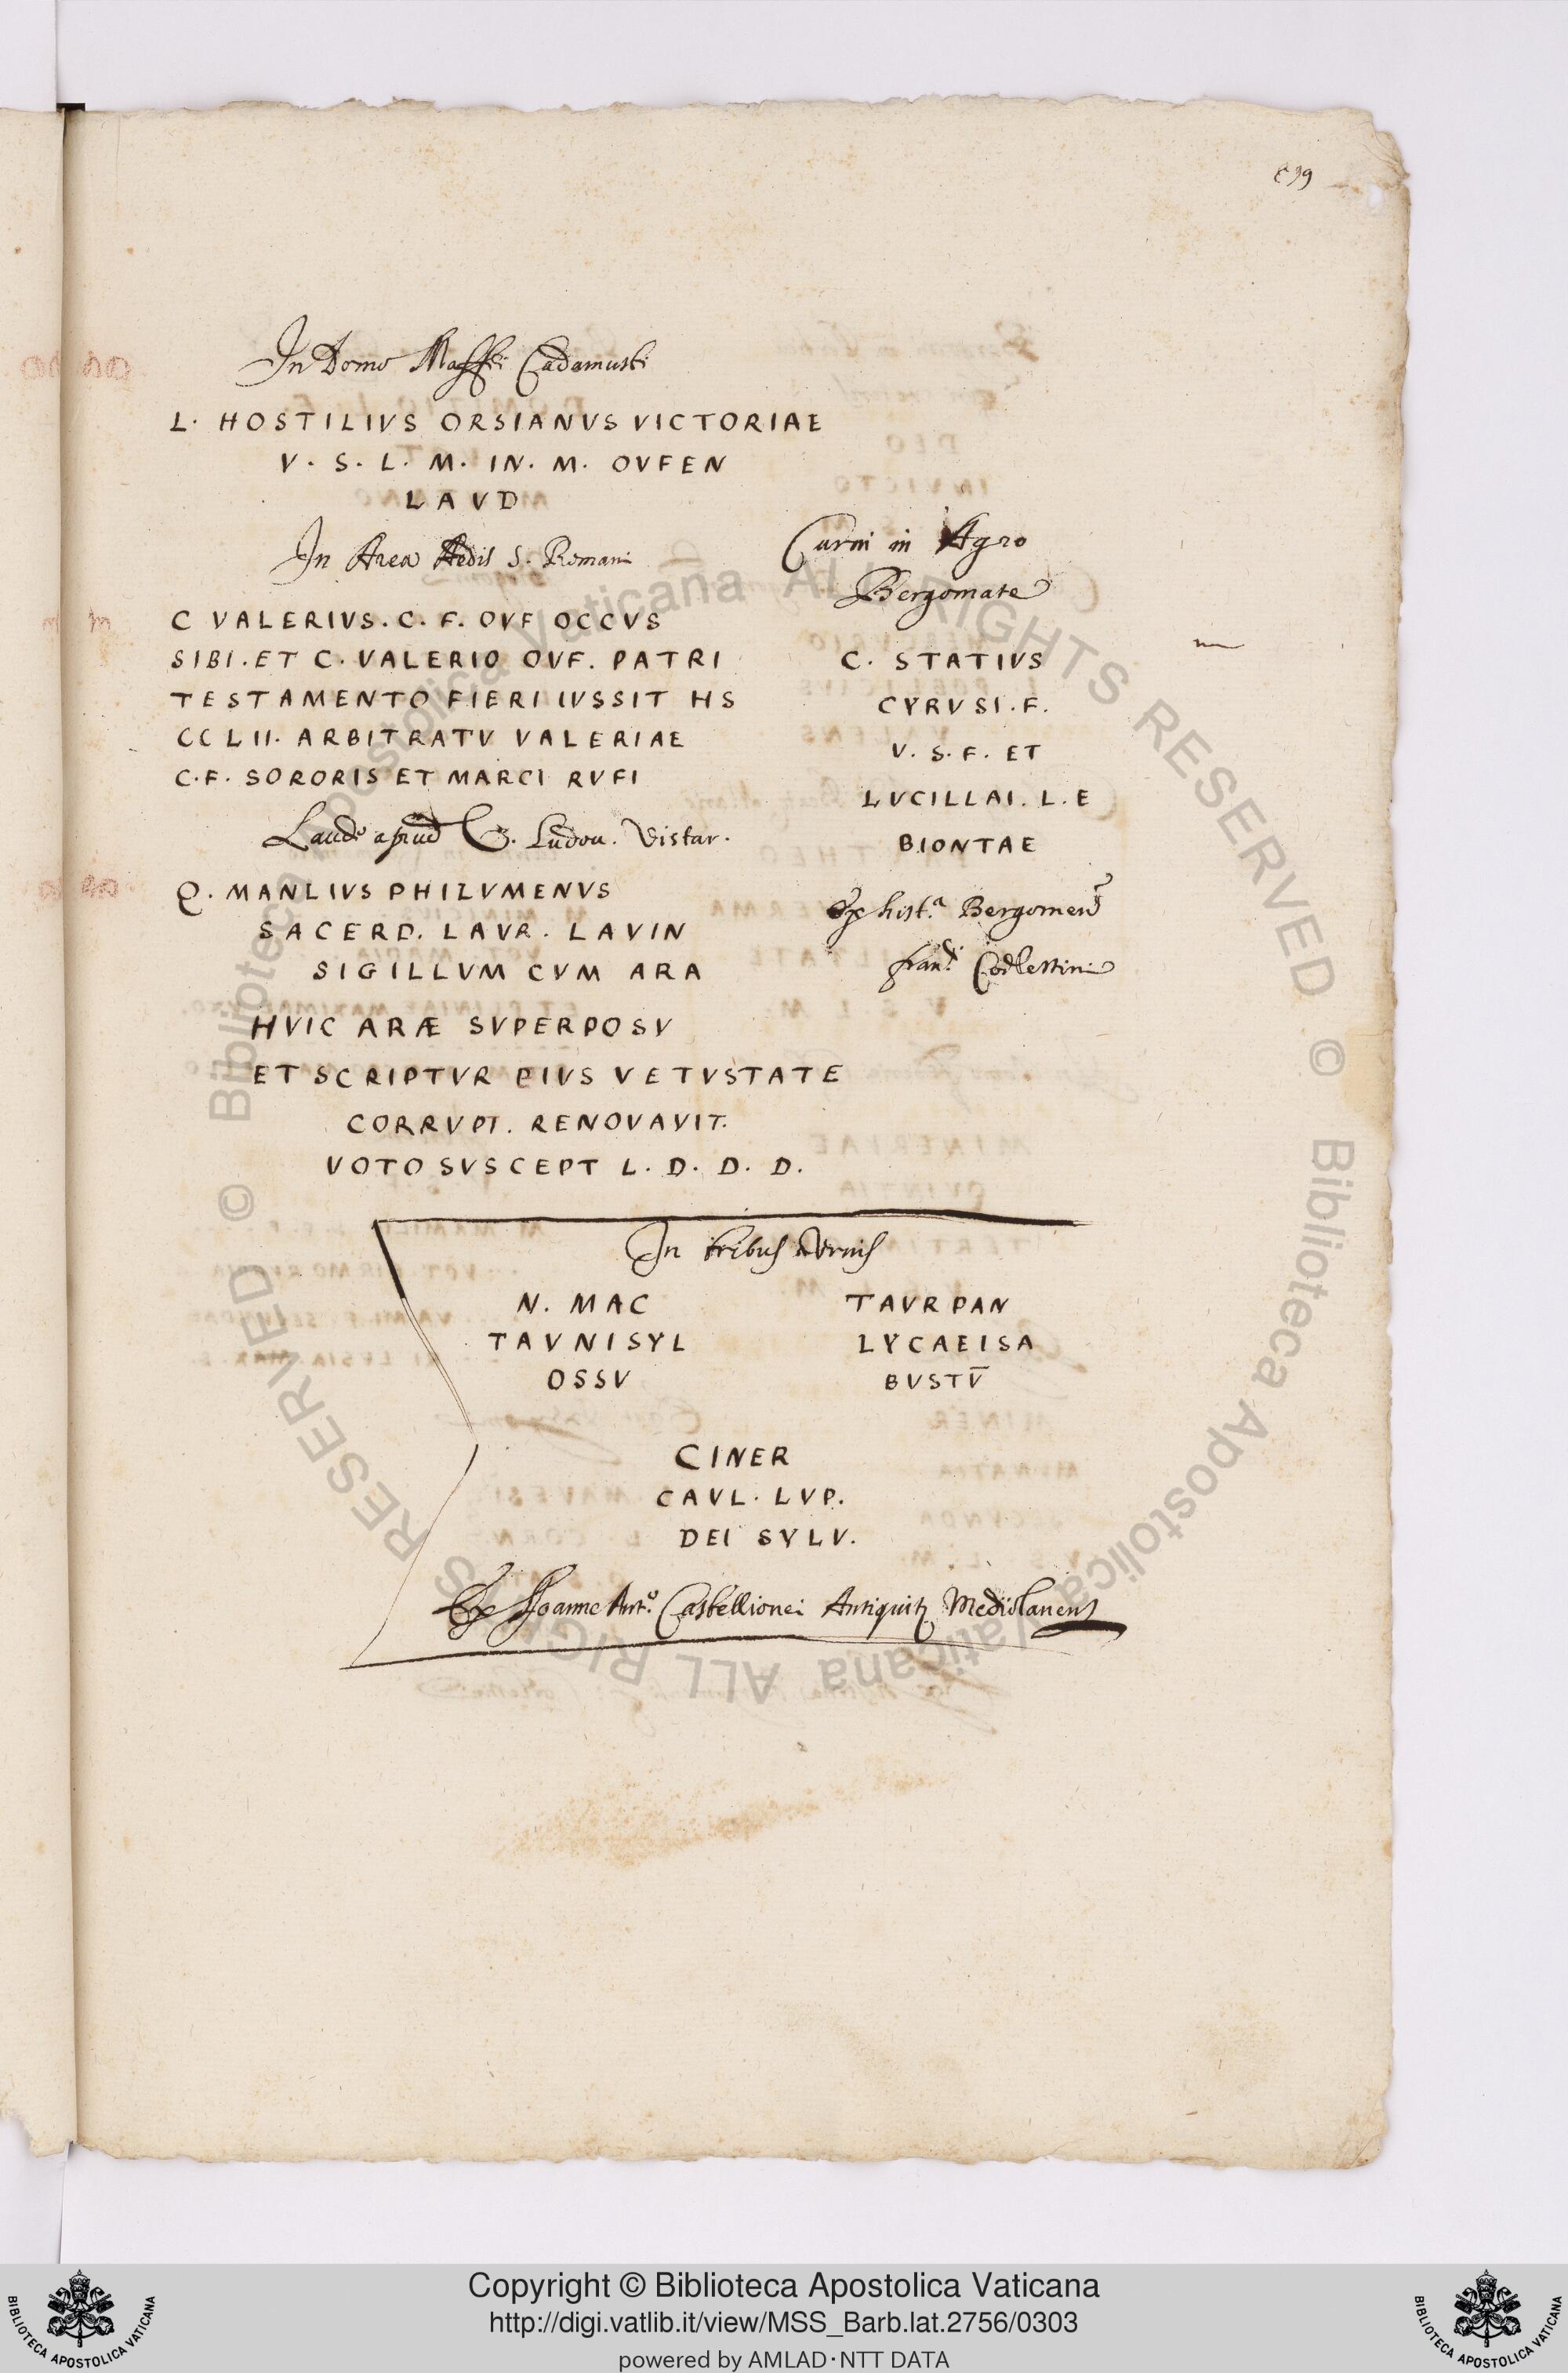 In Domo Maffei Cadamusti
L. HOSTILIVS ORSIANVS VICTORIAE
V. S. L. M. IN. M. OVFEN
LAVD
In Area Aedis S. Romani
C VALERIVS. C. F. OVF OCCVS
SIBI. ET C. VALERIO OVF. PATRI
TESTAMENTO FIERI IVSSIT HS
CCLII. ARBITRATV VALERIAE
C. F. SORORIS ET MARCI RVFI
Laude apud Ludou. Vistar.
Q. MANLIVS PHILVMENVS
SACERD. LAVR. LAVIN
SIGILLVM CVM ARA
HVIC ARÆ SVPERPOSV
ET SCRIPTVR PIVS VETVSTATE
CORRVPT. RENOVAVIT.
VOTO SVSCEPT L. D. D. D.
Carni in Agro
Bergomate
C. STATIVS
CYRVSI. F.
V. S. F. ET
LVCILLAI. L. E
BIONTAE
Ex hist.ª Bergomens
In tribus Vrnis
N. MAC
TAVNISYL
OSSV
TAVRPAN
LYCAEISA
BVSTV̅
CINER
CAVL. LVP.
DEI SYLV.
Ex Joanne Ant.º Castellionei Antiquit Mediolanens
© Biblioteca Apostolica Vaticana ALL RIGHTS RESERVED © Biblioteca Apostolica Vaticana ALL RIGHTS RESERVED
BIBLIOTECA APOSTOLICA VATICANA
Copyright © Biblioteca Apostolica Vaticana
http://digi.vatlib.it/view/MSS_Barb.lat.2756/0303
powered by AMLAD·NTT DATA
BIBLIOTECA APOSTOLICA VATICANA